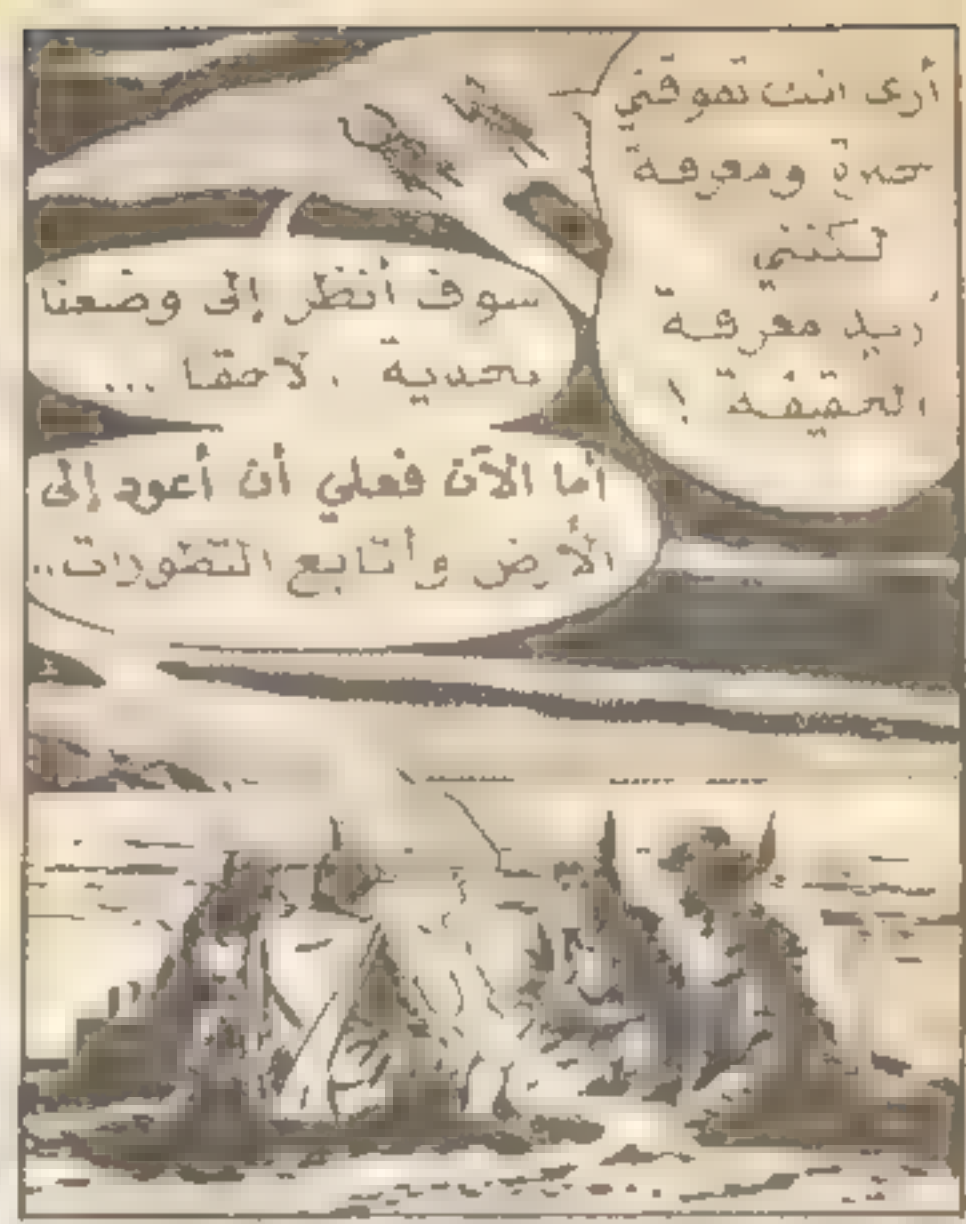 أرى انك تفوقني
خبرة ومعرفة
لكنني
أريد معرفة
الحقيقة !
سوف أنظر إلى وضعنا
بجدية . لاحقا ...
أما الآن فعلي أن أعود إلى
الأرض وأتابع التطورات..